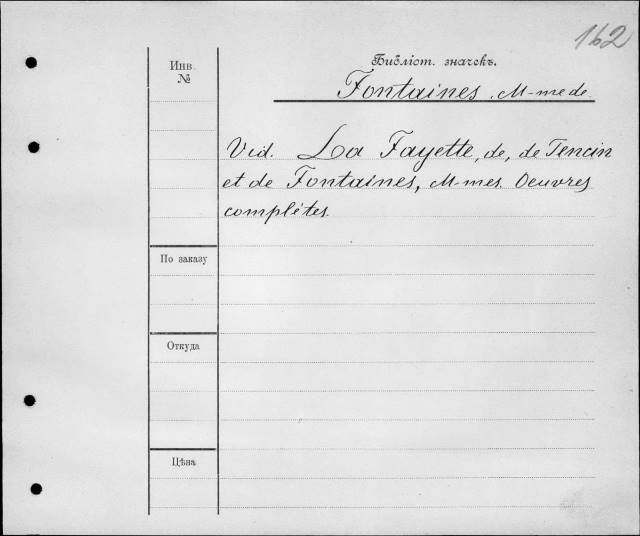 162
Инв.
№
Библіот. значекъ.
Fontaines, M-me de
Vid. La Fayette, de, de Tencin
et de Fontaines, M-mes. Oeuvres
complètes.
По заказу
Откуда
Цѣна